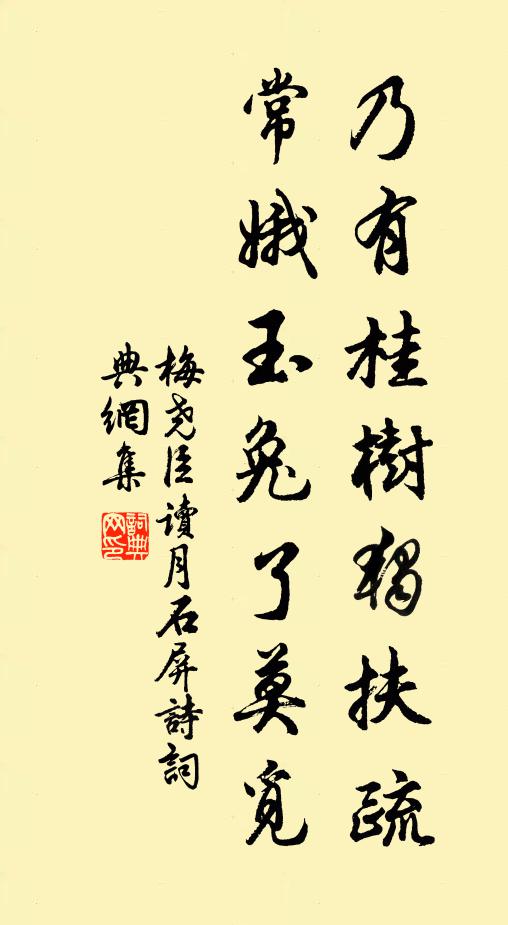 乃有桂樹獨扶疏
常娥玉兔了莫覓
梅尧臣讀月石屏詩詞
典網集
詞典网印